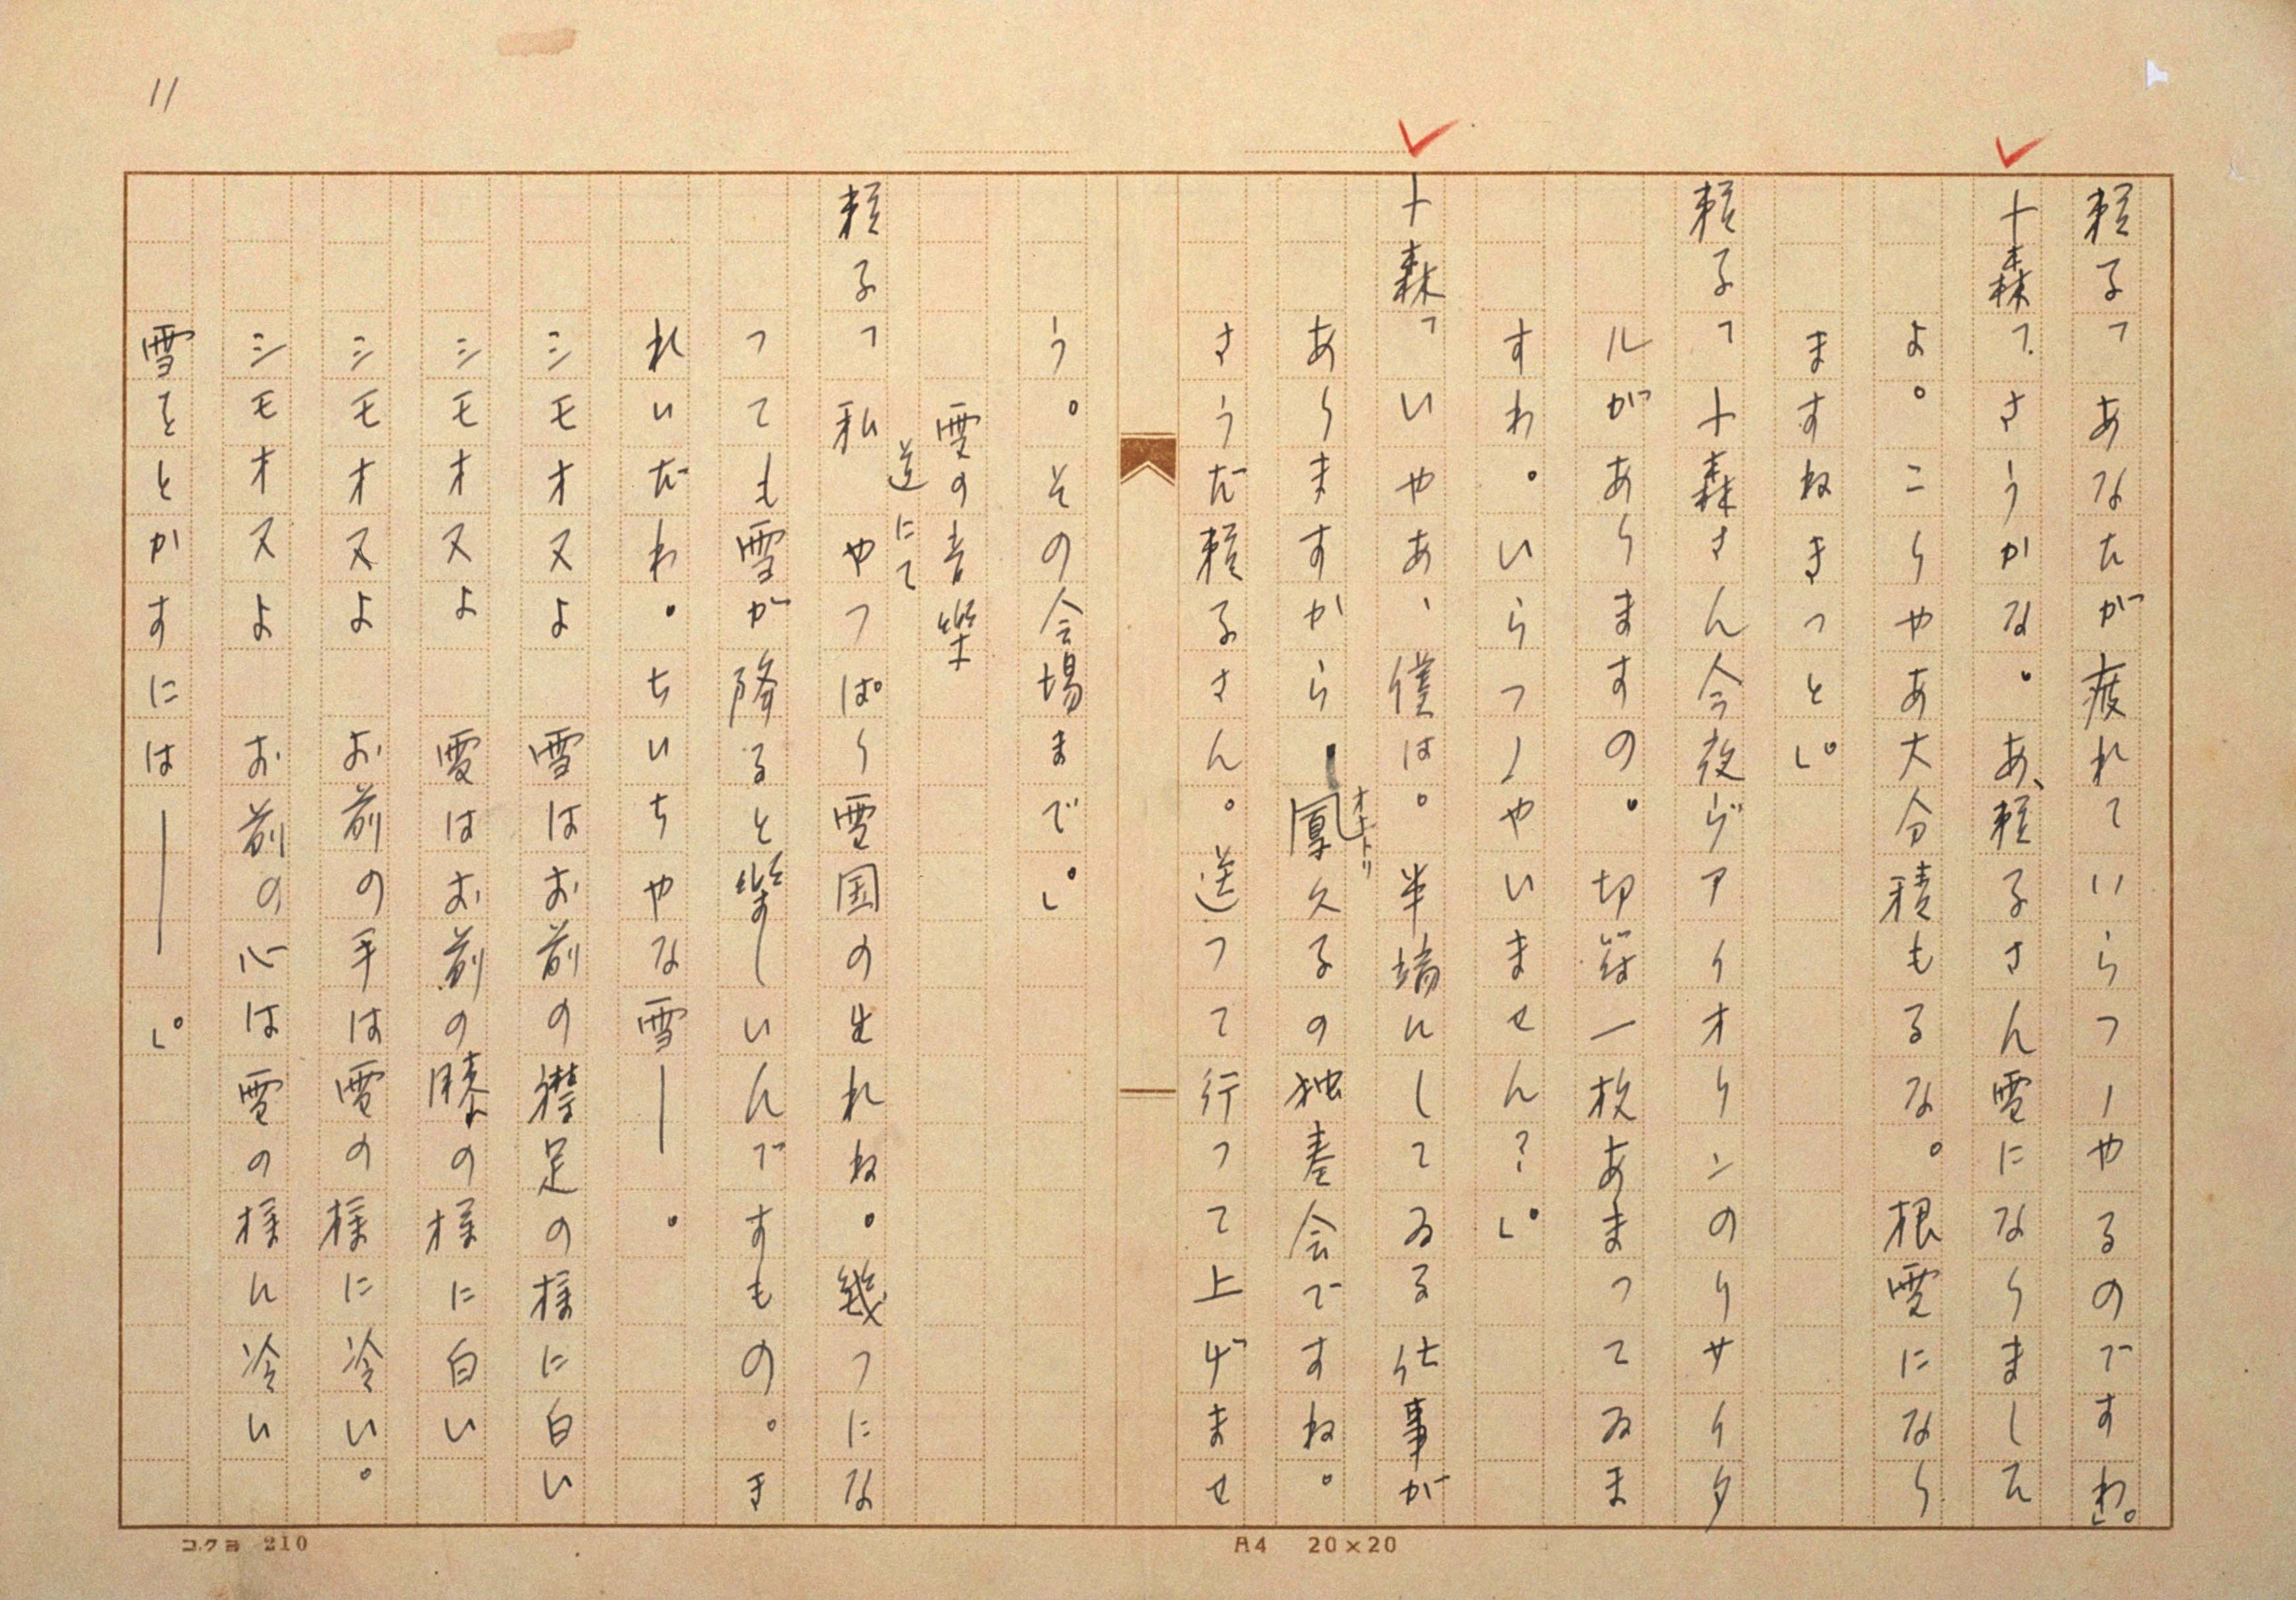 11
頼子「あなたが疲れていらつしやるのですわ」。
十森「さうかな。あ、頼子さん雪になりました
よ。こりやあ大分積もるな。根雪になり
ますねきつと」。
頼子「十森さん今夜ヴアイオリンのリサイタ
ルがありますの。切符一枚あまつてゐま
すわ。いらつしやいません？」。
十森「いやあ、僕は。半端にしてゐる仕事が
ありますから
鳳久子の独奏会ですね。
オオトリ
さうだ頼子さん。送つて行つて上げませ
う。その会場まで」。
雪の音楽
道にて
頼子「私 やつぱり雪国の生れね。幾つにな
つても雪が降ると楽しいんですもの。き
れいだわ。ちいちやな雪――。
シモオヌよ 雪はお前の襟足の様に白い
シモオヌよ 雪はお前の膝の様に白い
シモオヌよ お前の手は雪の様に冷い。
シモオヌよ お前の心は雪の様に冷い
雪をとかすには――」。
コクヨ 210
A4 20×20